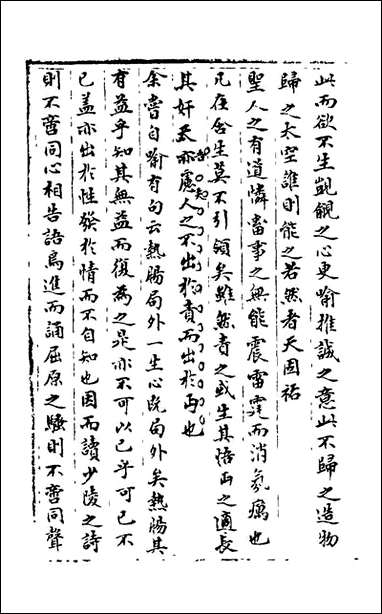 此而欲不生覬覦之心更喻推誠之意此不歸之造物
歸之太空誰則能之若然者天固祐
聖人之有道憐畜事之無能震雷霆而消氛癘也
凡在含生莫不引領矣雖然責之或生其悟而之適長
其奸天亦慮人之不出於責而出於而也
余嘗自喻有句云熱腸局外一生心既局外矣熱腸其
有益乎知其無益而復為之是亦不可以已乎可已不
已盖亦出於性發於情而不自知也因而讀少陵之詩
則不啻同心相告語焉進而誦屈原之騷則不啻同聲